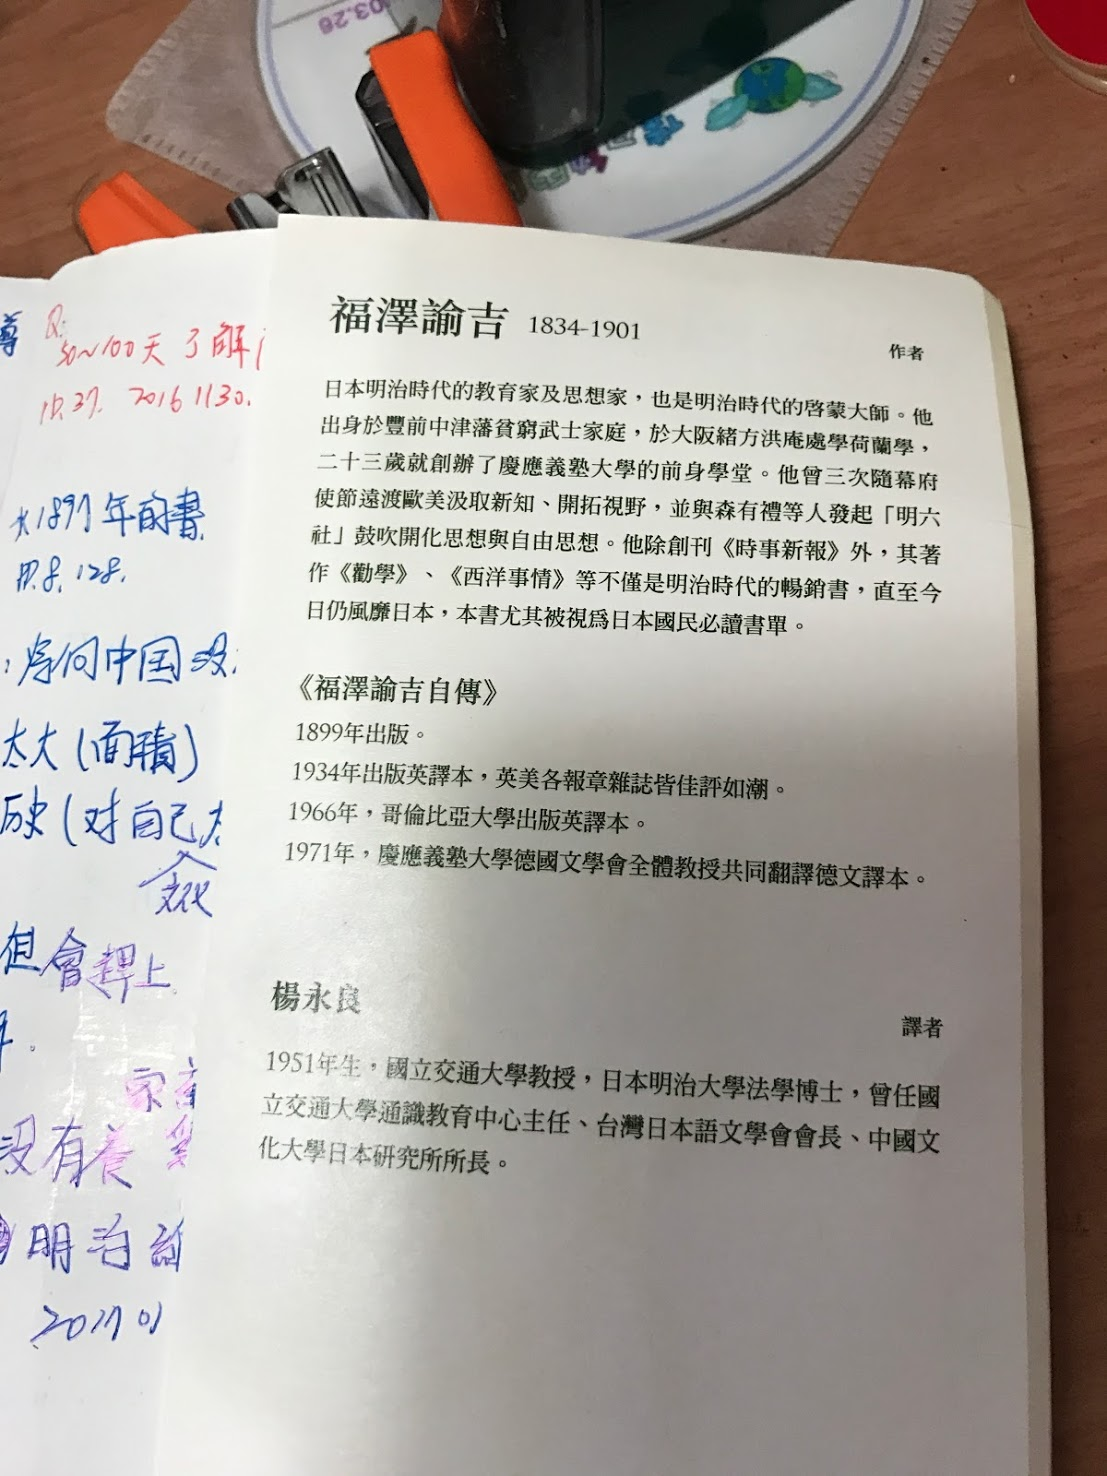 03.26
Q:
50~100天了解
p.37. 2016 1130.
1897年的書
P.8. 128.
太大(面積)
历史(对自己太
文化
但會趕上
沒有養
明治
2017 01
福澤諭吉 1834-1901
作者
日本明治時代的教育家及思想家，也是明治時代的啓蒙大師。他
出身於豐前中津藩貧窮武士家庭，於大阪緒方洪庵處學荷蘭學，
二十三歲就創辦了慶應義塾大學的前身學堂。他曾三次隨幕府
使節遠渡歐美汲取新知、開拓視野，並與森有禮等人發起「明六
社」鼓吹開化思想與自由思想。他除創刊《時事新報》外，其著
作《勸學》、《西洋事情》等不僅是明治時代的暢銷書，直至今
日仍風靡日本，本書尤其被視爲日本國民必讀書單。
《福澤諭吉自傳》
1899年出版。
1934年出版英譯本，英美各報章雜誌皆佳評如潮。
1966年，哥倫比亞大學出版英譯本。
1971年，慶應義塾大學德國文學會全體教授共同翻譯德文譯本。
楊永良
譯者
1951年生，國立交通大學教授，日本明治大學法學博士，曾任國
立交通大學通識教育中心主任、台灣日本語文學會會長、中國文
化大學日本研究所所長。